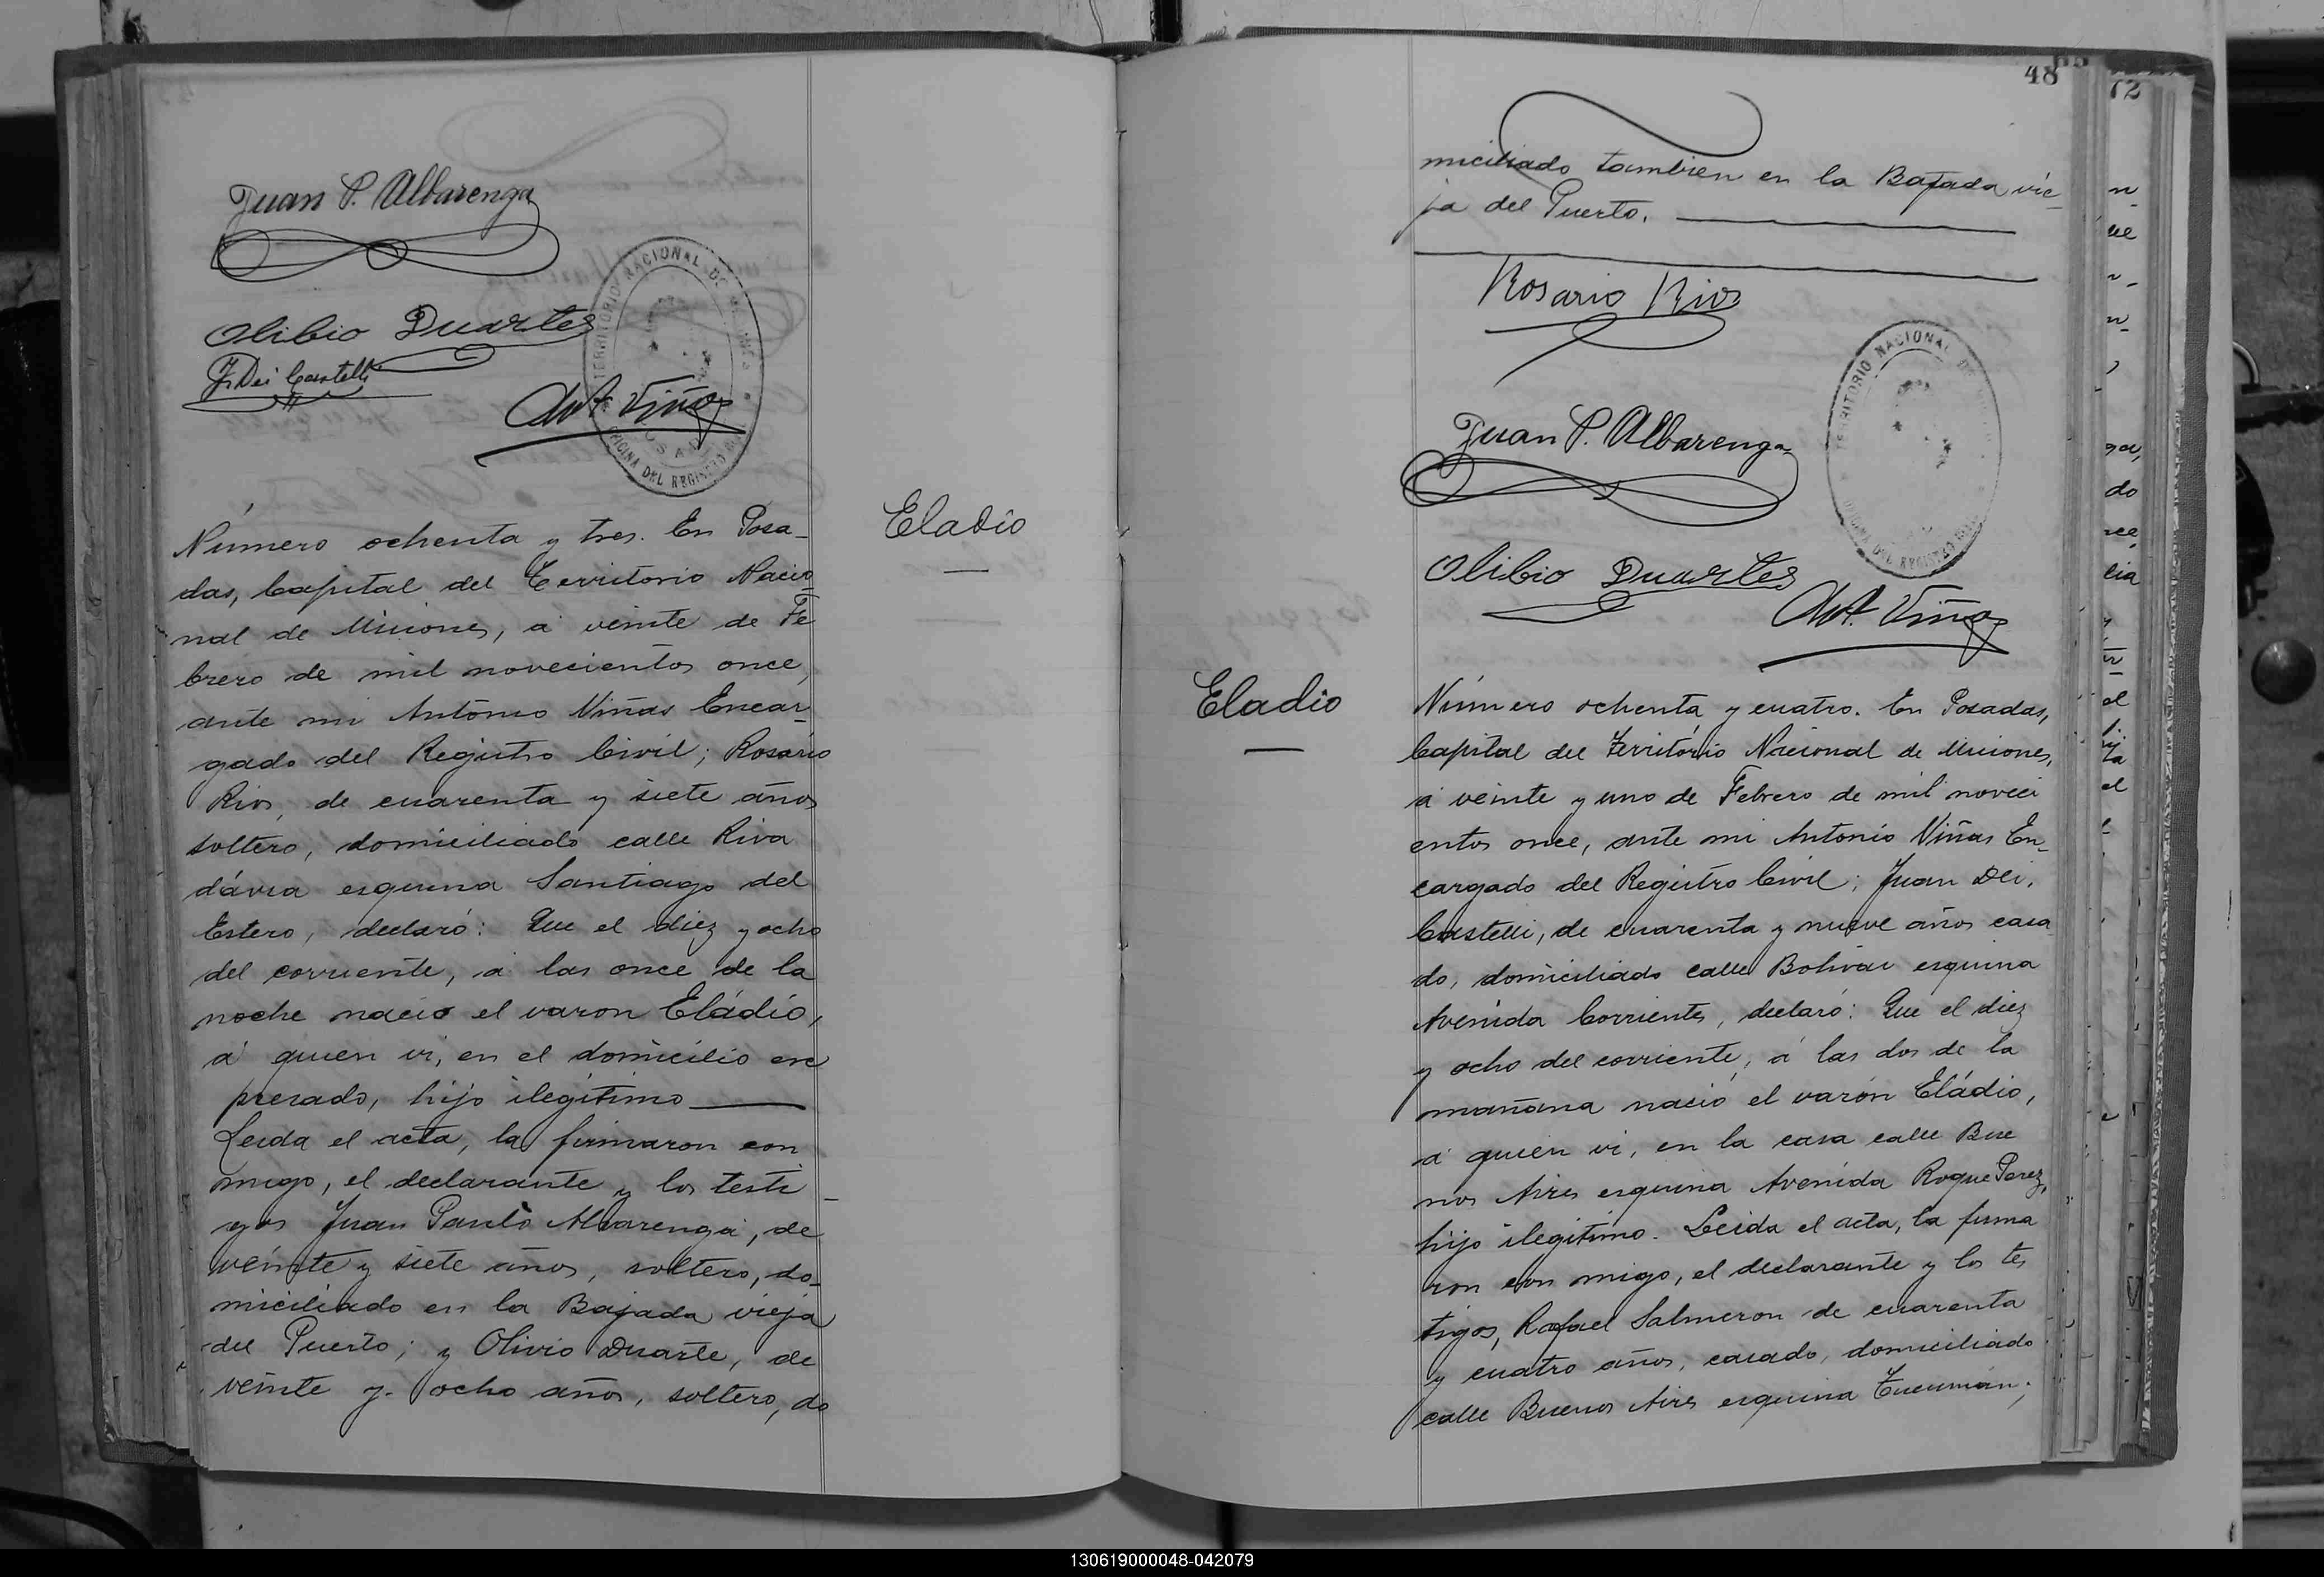 Juan P. Albarenga
Olibio Duartes
J. Dei Castelli
Ant. Viñas
TERRITORIO NACIONAL DE MISIONES
POSADAS
OFICINA DEL REGISTRO CIVIL
Número ochenta y tres. En Posa-
das, Capital del Territorio Nacio
nal de Misiones, á veinte de Fe
brero de mil novecientos once,
ante mi Antonio Viñas Encar-
gado del Registro Civil; Rosario
Rios, de cuarenta y siete años
soltero, domiciliado calle Riva
dávia esquina Santiago del
Estero, declaró: Que el diez y ocho
del corriente, á las once de la
noche nació el varon Eládio,
á quien vi, en el domicilio ex
presado, hijo ilegítimo
Leida el acta, la firmaron con
migo, el declarante y los testi-
gos Juan Paulo Alvarenga, de
veinte y siete años, soltero, do-
miciliado en la Bajada vieja
del Puerto; y Olivio Duarte, de
veinte y ocho años, soltero, do
Eladio
48
72
miciliado tambien en la Bajada vie-
ja del Puerto.
Rosario Rios
Juan P. Albarenga
Olibio Duartes
Ant. Viñas
TERRITORIO NACIONAL DE MISIONES
OFICINA DEL REGISTRO CIVIL
Eladio
Número ochenta y cuatro. En Posadas,
Capital del Territorio Nacional de Misiones,
á veinte y uno de Febrero de mil noveci
entos once, ante mi Antonio Viñas En-
cargado del Registro Civil; Juan Dei,
Castelli, de cuarenta y nueve años casa
do, domiciliado calle Bolivar esquina
Avenida Corrientes, declaró: Que el diez
y ocho del corriente, á las dos de la
mañana nació el varón Eládio,
á quien vi, en la casa calle Bue
nos Aires esquina Avenida Roque Perez,
hijo ilegítimo. Leida el acta, la firma
ron con migo, el declarante y los tes
tigos, Rafael Salmeron de cuarenta
y cuatro años, casado, domiciliado
calle Buenos Aires esquina Tucumán;
130619000048-042079